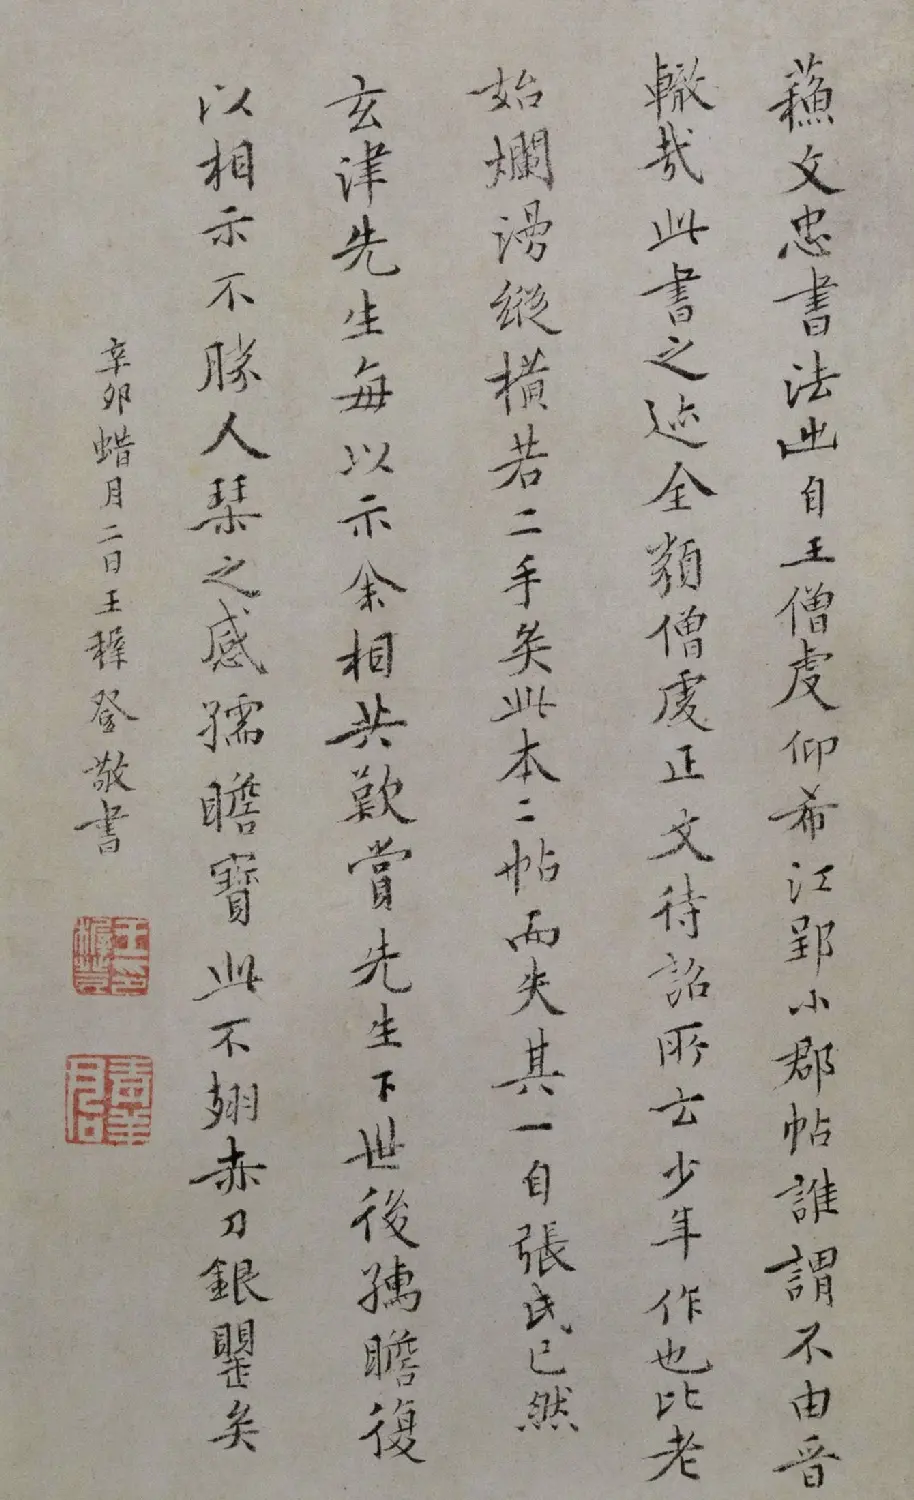 蘓文忠書法出自王僧虔仰希江郢小郡帖誰謂不由晋
轍哉此書之迹全類僧虔正文待詔所云少年作也比老
始爛漫縱橫若二手矣此本二帖而失其一自張氏已然
玄津先生每以示余相共歎賞先生下世後孺瞻復
以相示不勝人琹之感孺瞻寶此不翅赤刀銀瞿矣
辛卯蜡月二日王穉登敬書